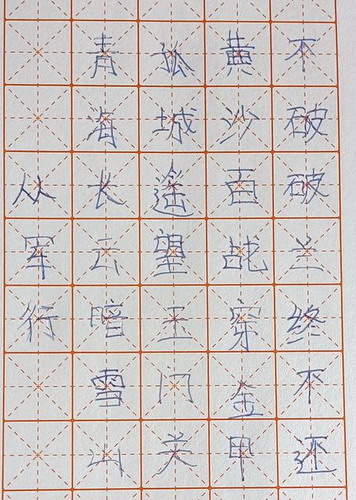 从军行
青海长云暗雪山
孤城遥望玉门关
黄沙百战穿金甲
不破破兰终不还